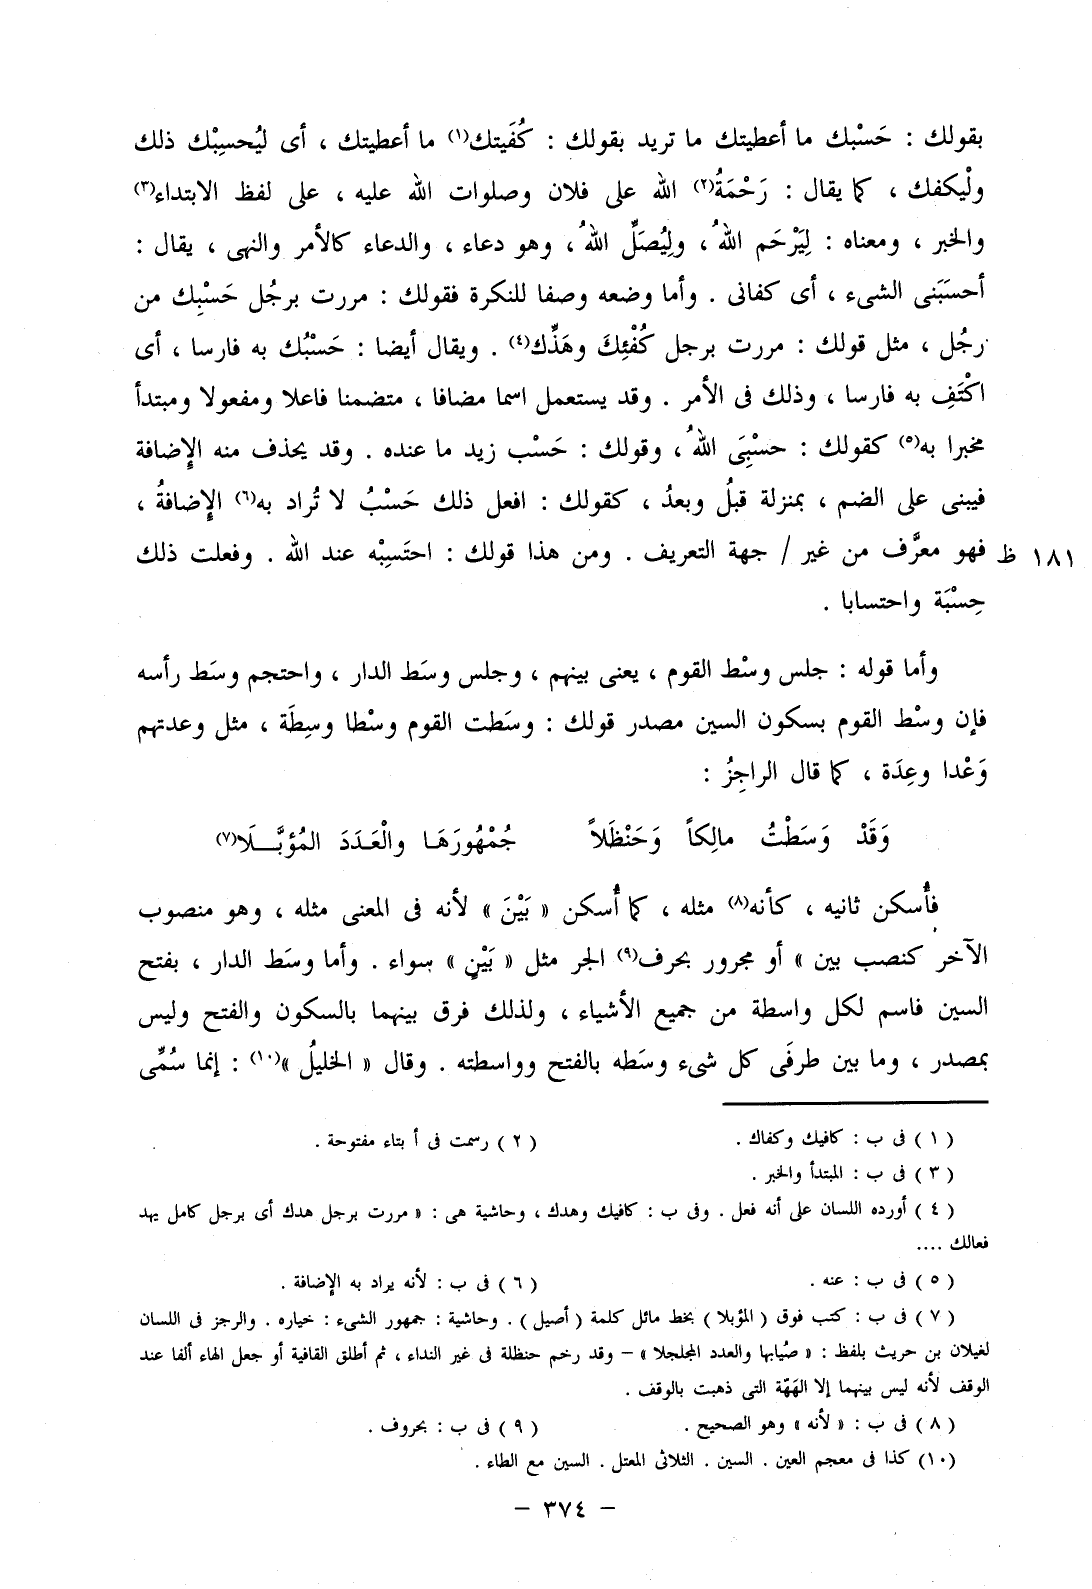 بقولك : حَسْبك ما أعطيتك ما تريد بقولك : كُفَيتك(١) ما أعطيتك ، أى ليُحسِبْك ذلك
ولْيكفك ، كما يقال : رَحْمَةُ(٢) الله على فلان وصلوات الله عليه ، على لفظ الابتداء(٣)
والخبر ، ومعناه : لِيَرْحَم اللهُ ، ولِيُصَلِّ اللهُ ، وهو دعاء ، والدعاء كالأمر والنهى ، يقال :
أحسَبَنى الشىء ، أى كفانى . وأما وضعه وصفا للنكرة فقولك : مررت برجُل حَسْبِك من
رجُل ، مثل قولك : مررت برجل كُفْئِكَ وهَدِّك(٤) . ويقال أيضا : حَسْبُك به فارسا ، أى
اكْتَفِ به فارسا ، وذلك فى الأمر . وقد يستعمل اسما مضافا ، متضمنا فاعلا ومفعولا ومبتدأ
مخبرا به(٥) كقولك : حسْبِىَ اللهُ ، وقولك : حَسْب زيد ما عنده . وقد يحذف منه الإضافة
فيبنى على الضم ، بمنزلة قبلُ وبعدُ ، كقولك : افعل ذلك حَسْبُ لا تُراد به(٦) الإضافةُ ،
١٨١ ظ فهو معرَّف من غير / جهة التعريف . ومن هذا قولك : احتَسِبْه عند الله . وفعلت ذلك
حِسْبَة واحتسابا .
وأما قوله : جلس وسْط القوم ، يعنى بينهم ، وجلس وسَط الدار ، واحتجم وسَط رأسه
فإن وسْط القوم بسكون السين مصدر قولك : وسَطت القوم وسْطا وسِطَة ، مثل وعدتهم
وَعْدا وعِدَة ، كما قال الراجِزُ :
وَقَدْ وَسَطْتُ مالِكاً وَحَنْظَلاً جُمْهُورَهَا والْعَدَدَ المُؤبَّلَا(٧)
فأُسكن ثانيه ، كأنه(٨) مثله ، كما أُسكن « بَيْنَ » لأنه فى المعنى مثله ، وهو منصوب
الآخر كنصب بين » أو مجرور بحرف(٩) الجر مثل « بَيْنٍ » سواء . وأما وسَط الدار ، بفتح
السين فاسم لكل واسطة من جميع الأشياء ، ولذلك فرق بينهما بالسكون والفتح وليس
بمصدر ، وما بين طرفَى كل شىء وسَطه بالفتح وواسطته . وقال « الخليلُ »(١٠) : إنما سُمِّى
(١) فى ب : كافيك وكفاك . (٢) رسمت فى أ بتاء مفتوحة .
(٣) فى ب : المبتدأ والخبر .
(٤) أورده اللسان على أنه فعل . وفى ب : كافيك وهدك ، وحاشية هى : « مررت برجل هدك أى برجل كامل يهد
فعالك ....
(٥) فى ب : عنه . (٦) فى ب : لأنه يراد به الإضافة .
(٧) فى ب : كتب فوق (المؤبلا) بخط مائل كلمة (أصيل) . وحاشية : جمهور الشىء : خياره . والرجز فى اللسان
لغيلان بن حريث بلفظ : « صُيابها والعدد المجلجلا » – وقد رخم حنظلة فى غير النداء ، ثم أطلق القافية أو جعل الهاء ألفا عند
الوقف لأنه ليس بينهما إلا الهَهّة التى ذهبت بالوقف .
(٨) فى ب : « لأنه » وهو الصحيح . (٩) فى ب : بحروف .
(١٠) كذا فى معجم العين . السين . الثلاثى المعتل . السين مع الطاء .
– ٣٧٤ –